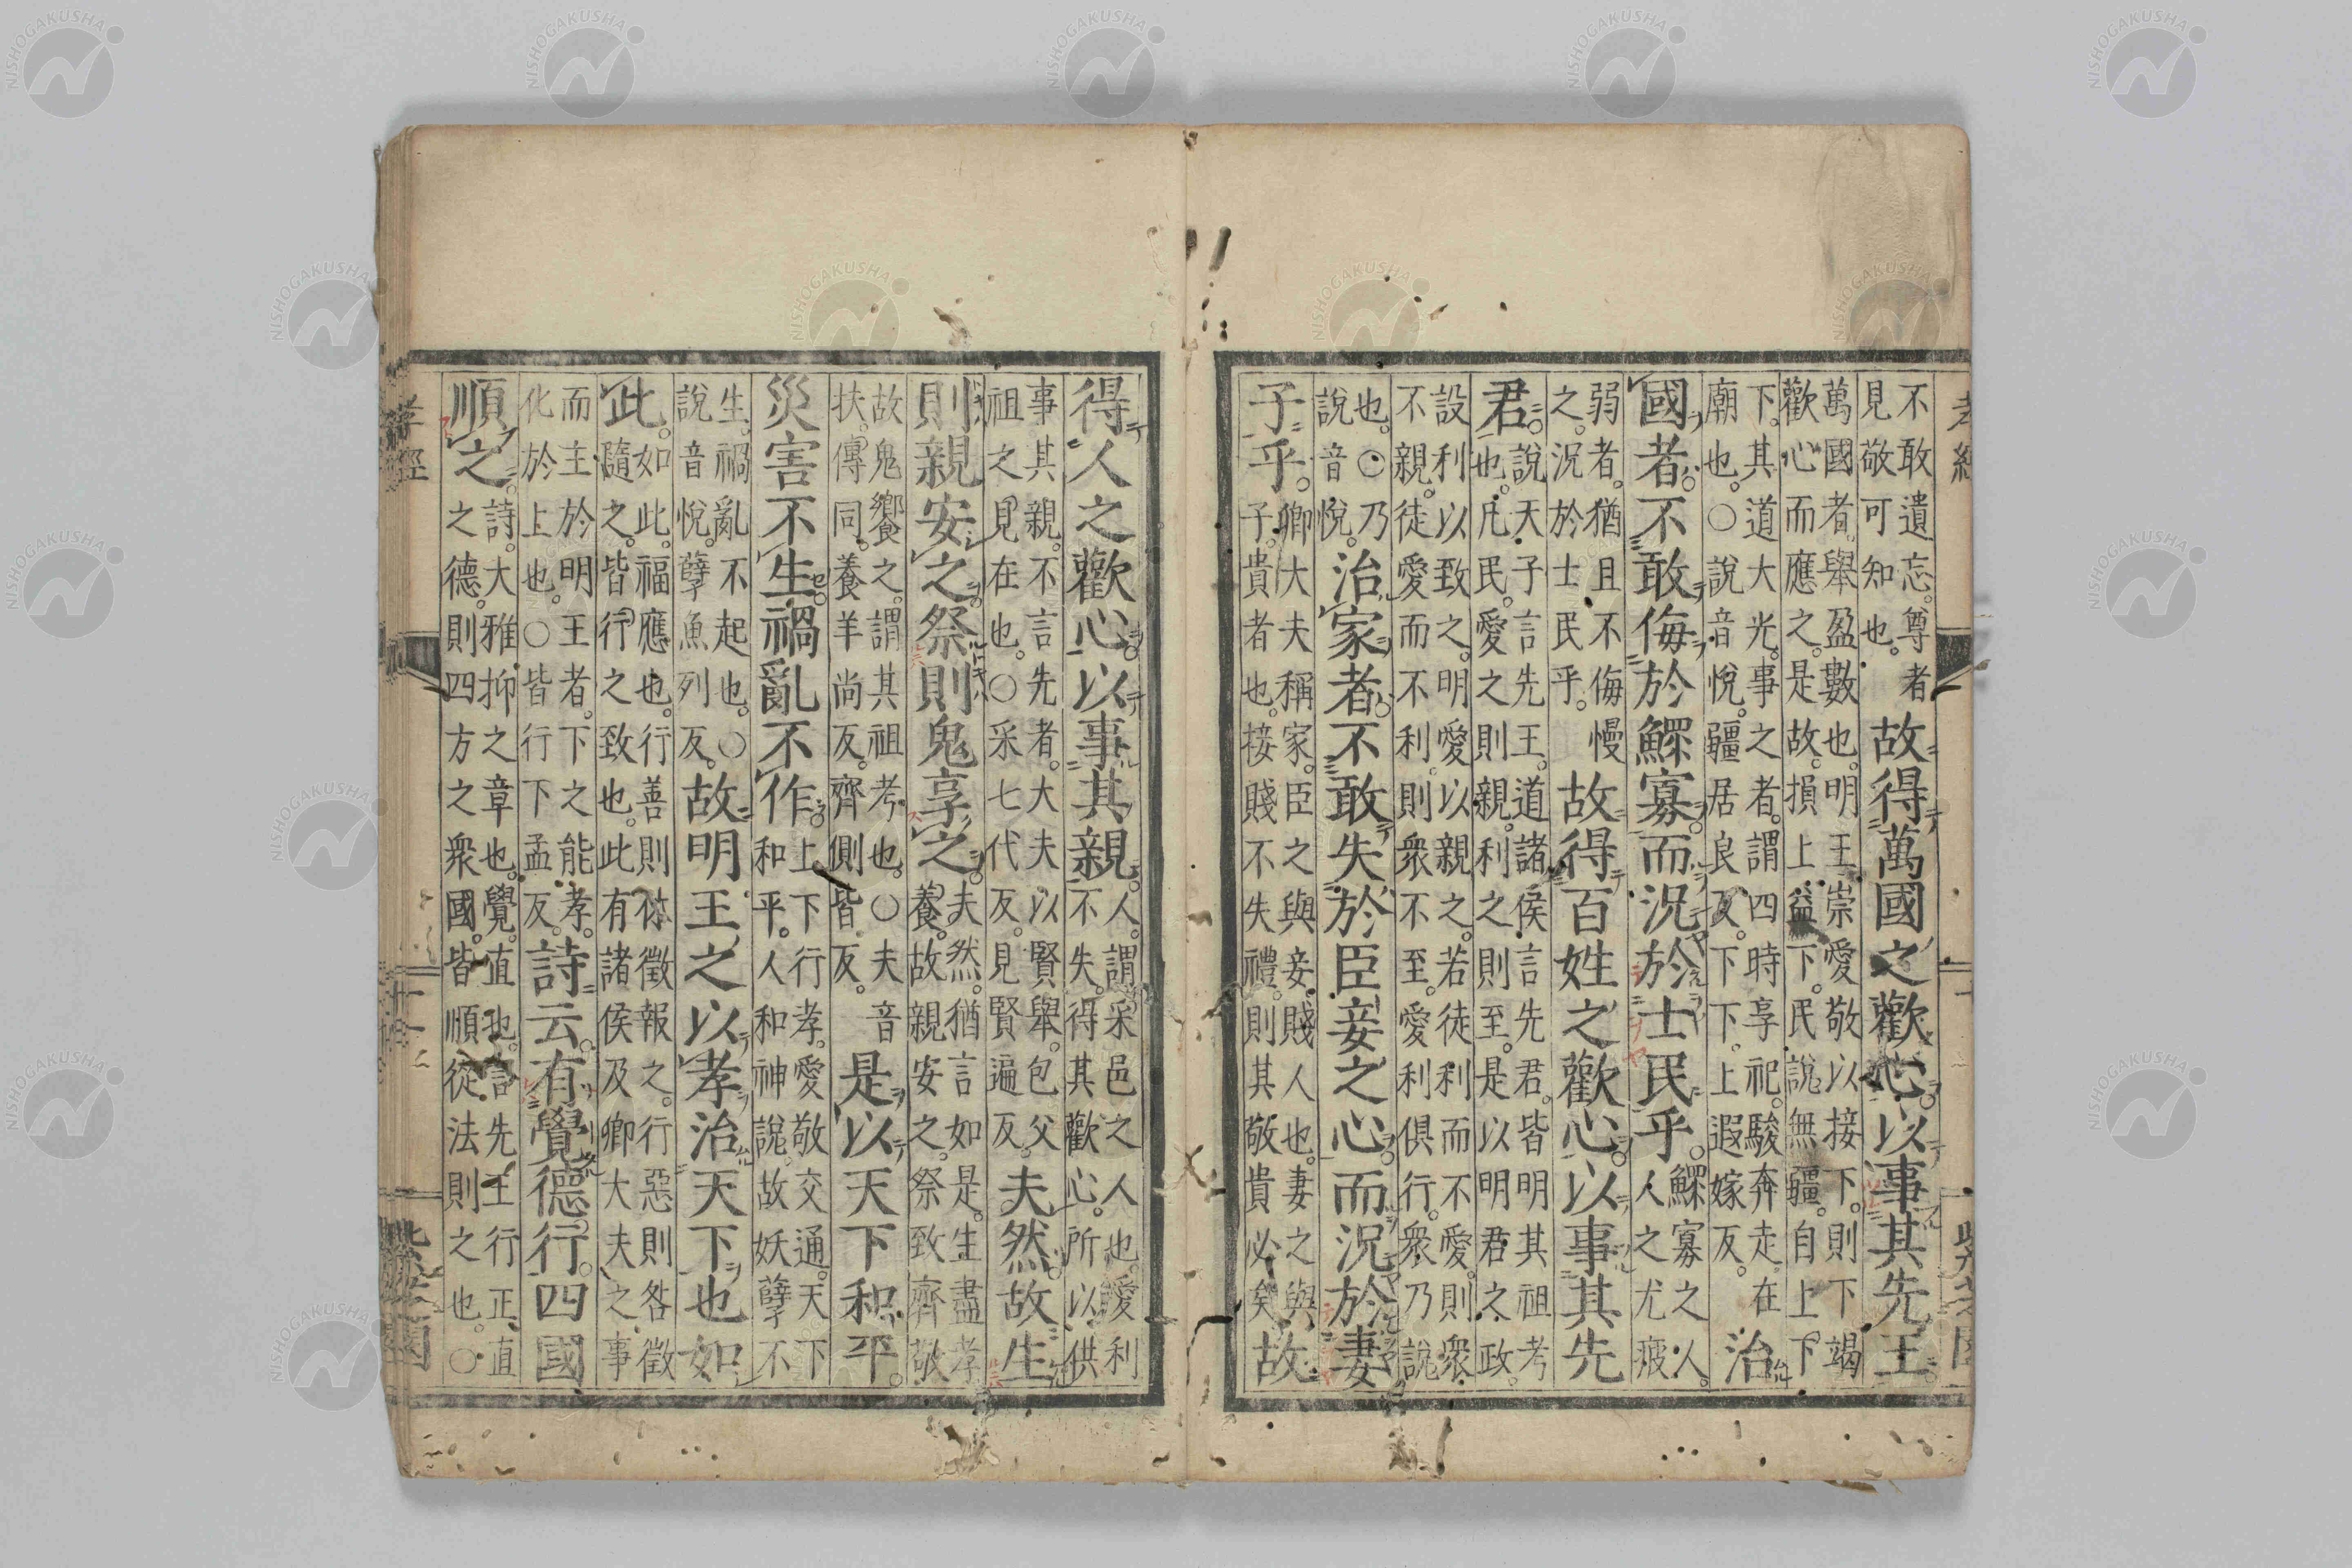 孝經
不敢遺忘。尊者
見敬可知也。
故得萬國之歡心。以事其先王。
萬國者。舉盈數也。明王崇愛敬以接下。則下竭
歡心而應之。是故損上益下。民說無疆。自上下
下。其道大光。事之者。謂四時享祀。駿奔走在
廟也。○說音悅。疆居良反。下下。上遐嫁反。
治
國者。不敢侮於鰥寡。而況於士民乎。
鰥寡之人。
人之尤疲
弱者。猶且不侮慢
之。況於士民乎。
故得百姓之歡心。以事其先
君。
說天子言先王。道諸侯。言先君。皆明其祖考
也。凡民。愛之則親。利之則至。是以明君之政。
設利以致之。明愛以親之。若徒利而不愛。則衆
不親。徒愛而不利。則衆不至。愛利俱行。衆乃說
也。○乃
說音悅。
治家者。不敢失於臣妾之心。而況於妻
子乎。
卿大夫稱家。臣之與妾。賤人也。妻之與
子。貴者也。接賤不失禮。則其敬貴必矣
故
得人之歡心。以事其親。
人。謂采邑之人也。愛利
不失。得其歡心。所以供
事其親。不言先者。大夫以賢舉。包父
祖之見在也。○采七代反。見賢遍反。
夫然。故生
則親安之。祭則鬼享之。
夫然。猶言如是。生盡孝
養。故親安之。祭致齊敬
故鬼饗之。謂其祖考也。○夫音
扶。傳同。養羊尚反。齊側皆反。
是以天下和平。
災害不生。禍亂不作。
上下行孝。愛敬交通。天下
和平。人和神說。故妖孽不
生。禍亂不起也。○
說音悅。孽魚列反。
故明王之以孝治天下也如
此。
如此。福應也。行善則休徵報之。行惡則咎徵
隨之。皆行之致也。此有諸侯及卿大夫之事
而主於明王者。下之能孝。
化於上也。○皆行下孟反。
詩云。有覺德行。四國
順之。
詩。大雅抑之章也。覺。直也。言先王行正直
之德。則四方之衆國。皆順從法則之也。○
孝經